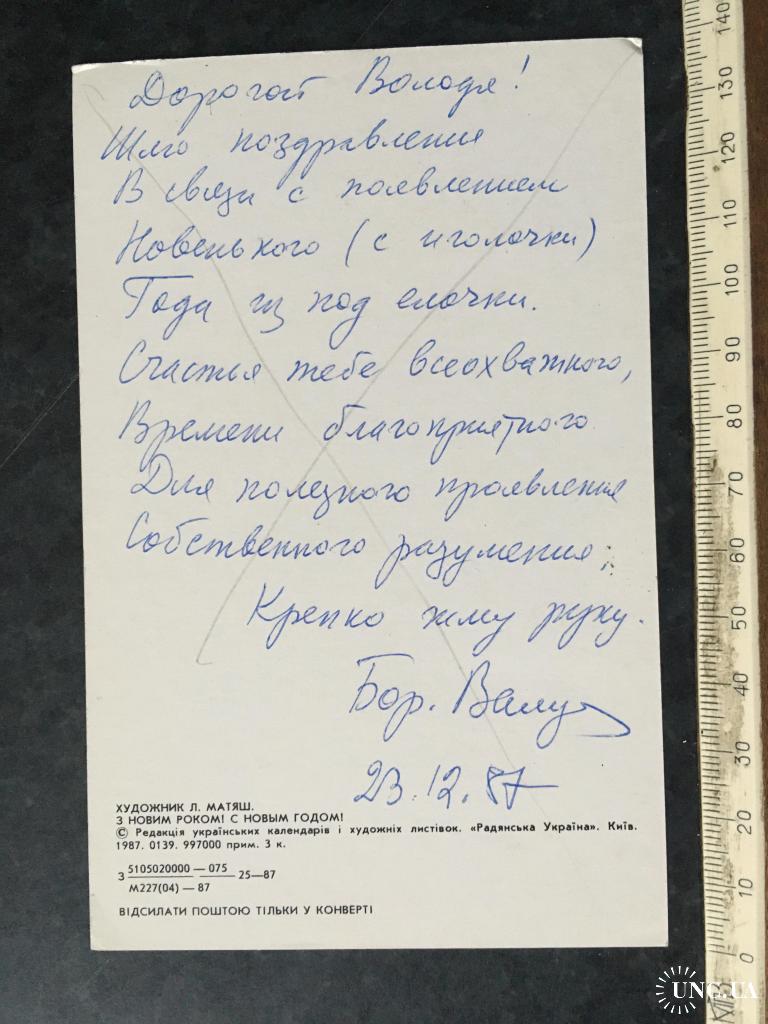 Дорогой Володя!
Шлю поздравления
В связи с появлением
Новенького (с иголочки)
Года из под елочки.
Счастья тебе всеохватного,
Времени благоприятного
Для полезного проявления
Собственного разумения;
Крепко жму руку.
Бор.
23.12.87
ХУДОЖНИК Л. МАТЯШ.
З НОВИМ РОКОМ! С НОВЫМ ГОДОМ!
© Редакція українських календарів і художніх листівок. «Радянська Україна». Київ.
1987. 0139. 997000 прим. 3 к.
З 5105020000 — 075 25—87
М227(04) — 87
ВІДСИЛАТИ ПОШТОЮ ТІЛЬКИ У КОНВЕРТІ
140
130
120
110
100
90
80
70
60
50
40
30
20
10
0
UNC.UA